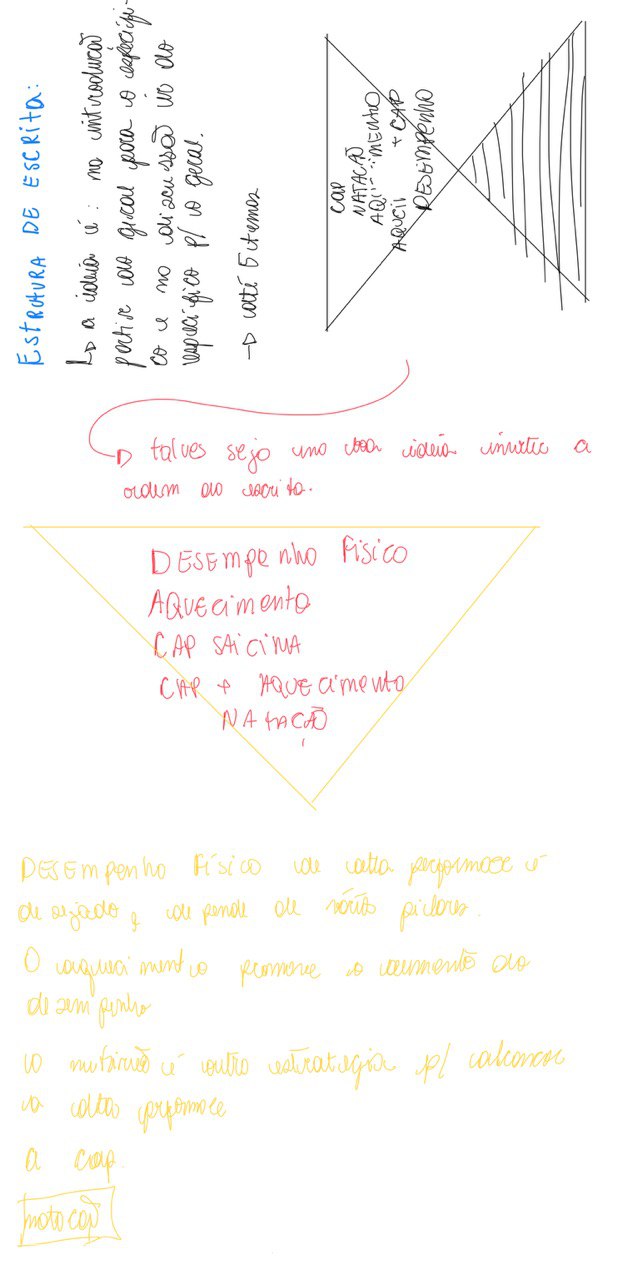 ESTRUTURA DE ESCRITA:
a ideia é: na introdução
partir do geral para o especifi-
co e na discussão ir do
específico p/ o geral.
até 5 temas
CAP
NATAÇÃO
+ CAP
DESEMPENHO
talves seja uma boa ideia inverter a
ordem da escrita.
DESEMPENHO FíSiCO
AQUECimENTO
CAP SAiCiNA
CAP + AQUECimENTO
NATAÇÃO
DESEmPENHO FíSiCO de alta performace é
desejado e depende de vários pilares.
O aquecimento promove o aumento do
desempenho
a nutrição é outra estrategia p/ alcancar
a alta performace
a cap.